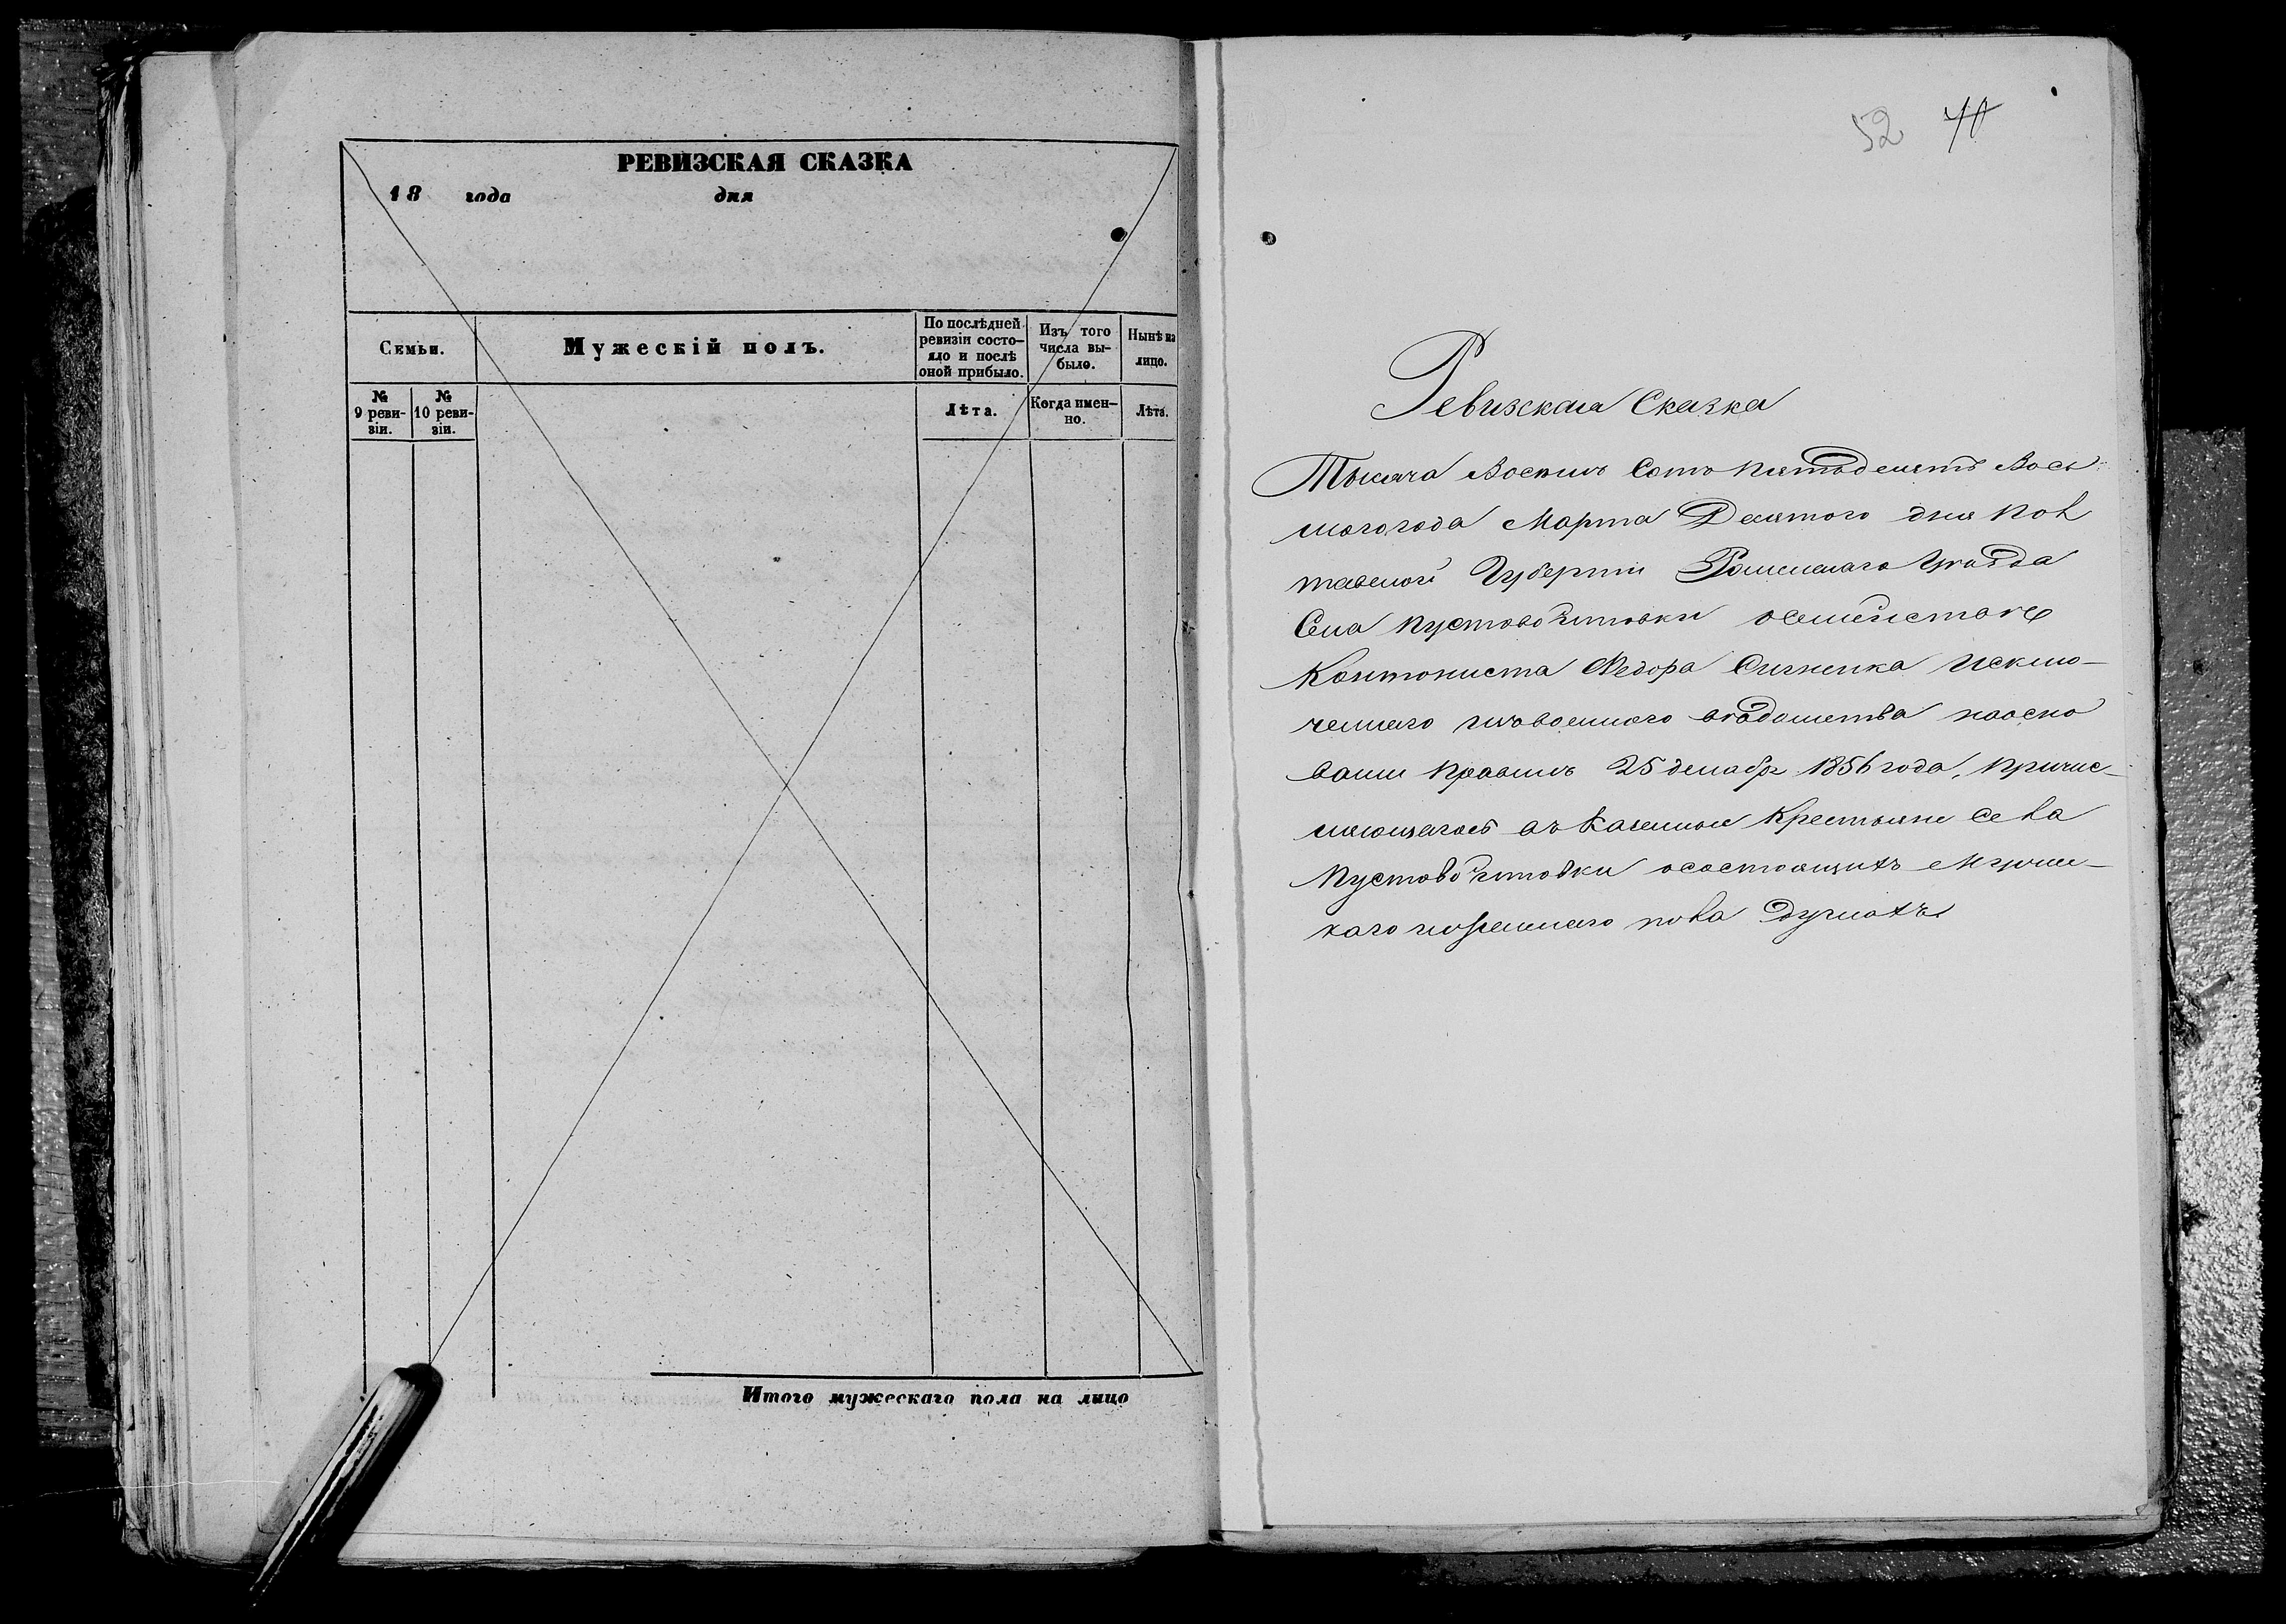 РЕВИЗСКАЯ СКАЗКА
18 года дня
Семьи.
Мужескій полъ.
По послѣдней
ревизіи состо-
яло и послѣ
оной прибыло.
Изъ того
числа вы-
было.
Нынѣ на
лицо.
№
9 реви-
зіи.
№
10 реви-
зіи.
Лѣта.
Когда имен-
но.
Лѣта.
Итого мужескаго пола на лицо
52 70
Ревизская Сказка
Тысяча Восемъ Сотъ пятьдесятъ Вось
мого года Марта Десятого дня Пол
тавской Губерніи Роменскаго Уѣзда
Села Пустовойтовки осемействѣ
Кантониста Федора Исклю-
ченнаго изъ военнаго вѣдомства наосно
ваніи Правилъ 25 декабр 1856 года, Причис-
ляющагось въ Казенные Крестьяне Села
Пустовойтовки осостоящихъ Мужес-
каго иженскаго пола Душахъ